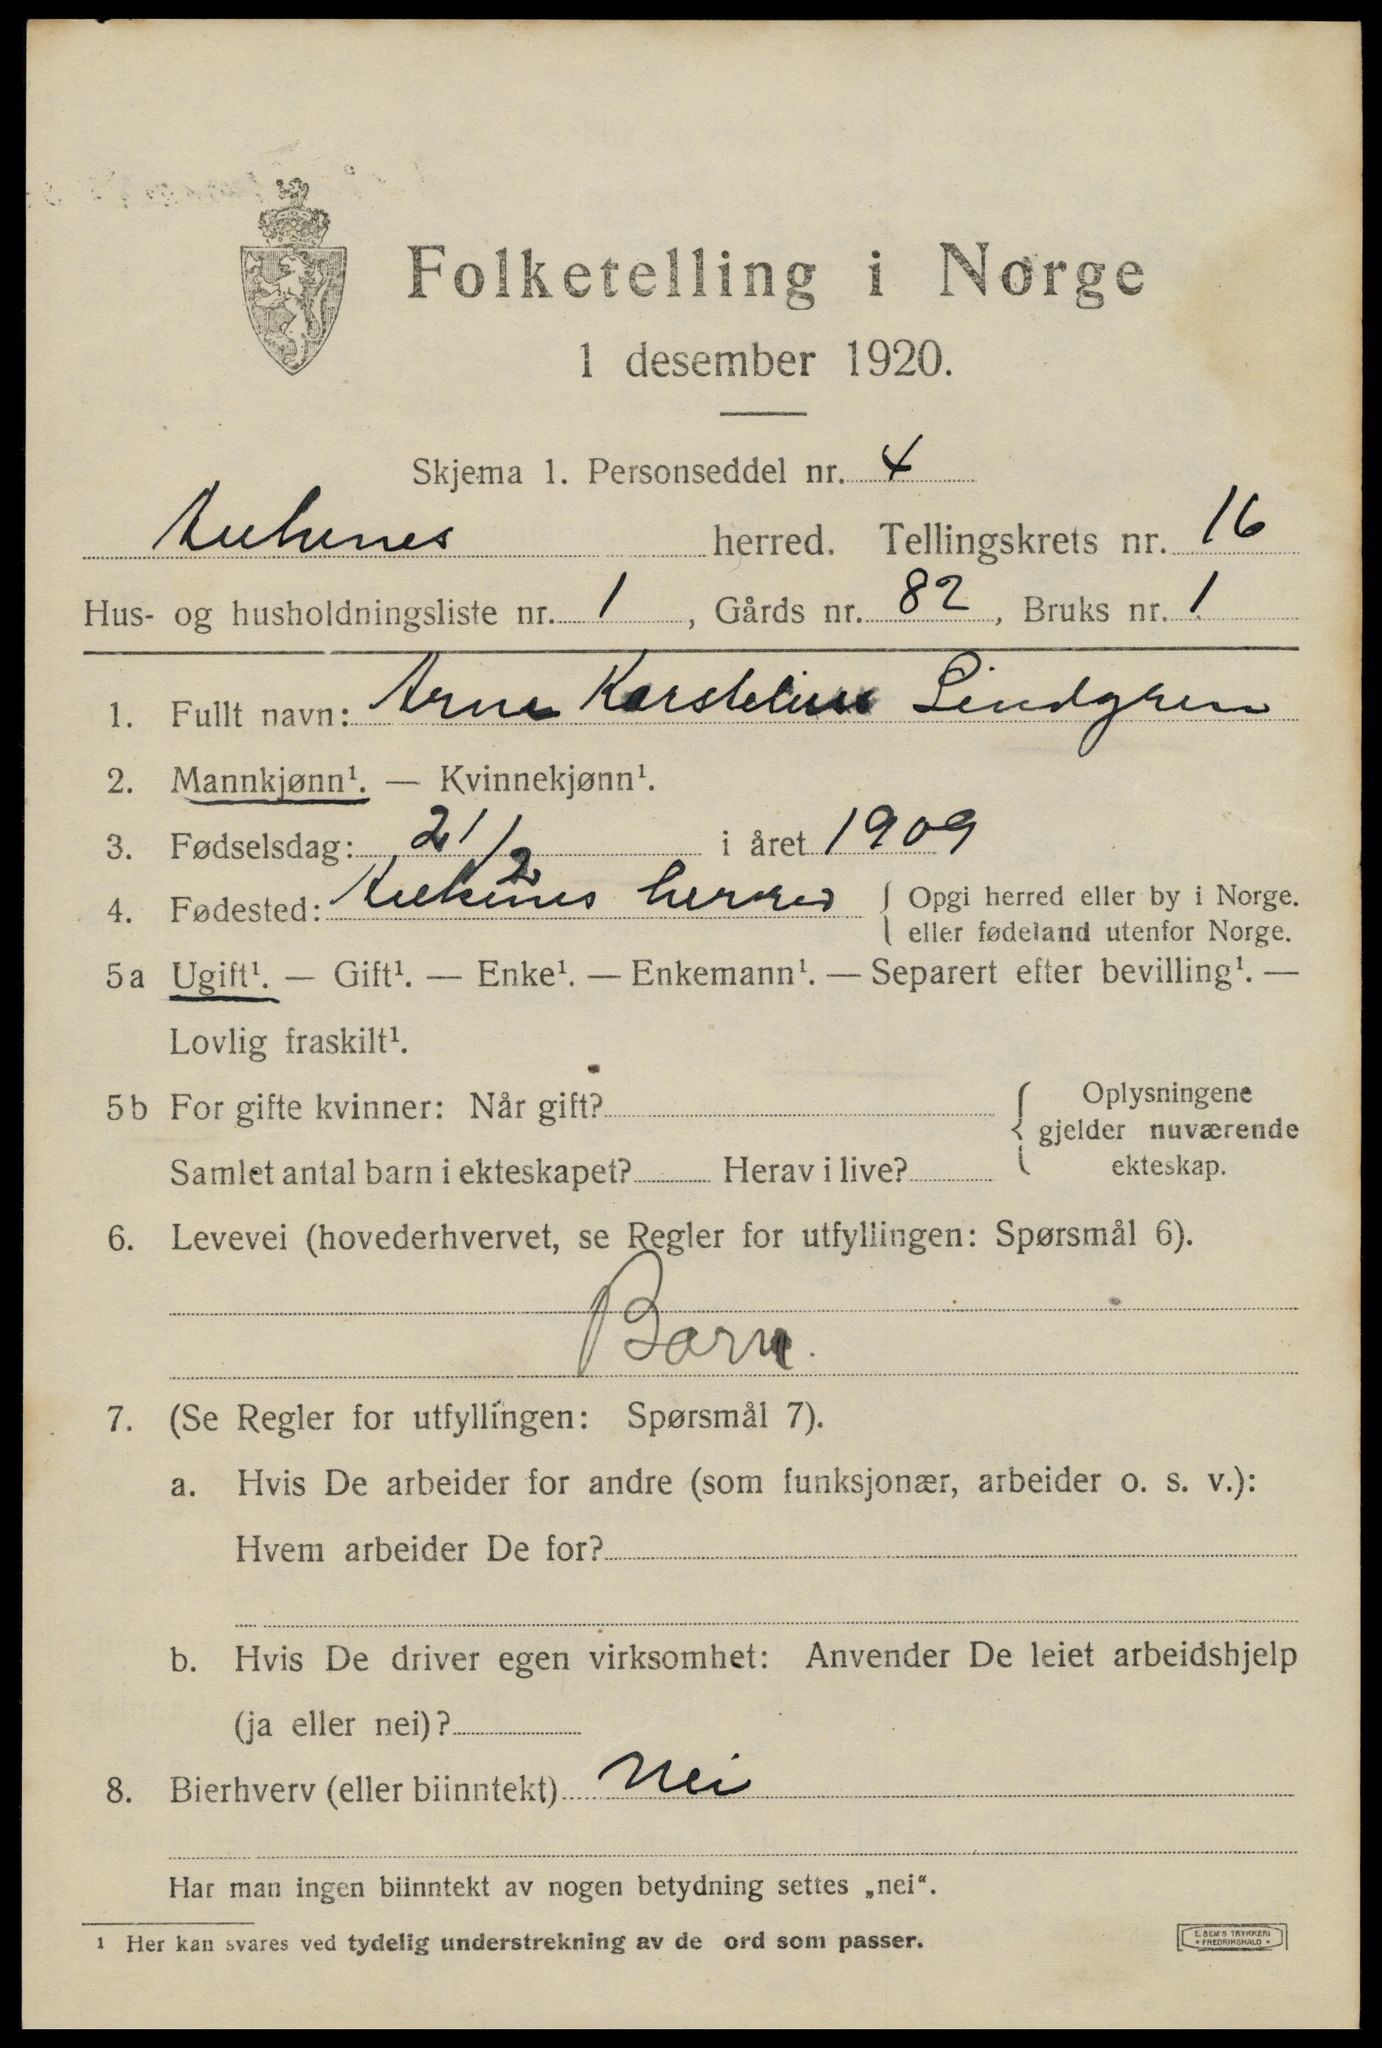 Folketelling i Norge
1 desember 1920.
Skjema 1. Personseddel nr. 4
herred. Tellingskrets nr. 16
Hus- og husholdningsliste nr. 1, Gårds nr. 82, Bruks nr. 1
1. Fullt navn: Arne Karstelius Lindgren
2. Mannkjønn¹. — Kvinnekjønn¹.
3. Fødselsdag: 21/2 i året 1909
4. Fødested: herred { Opgi herred eller by i Norge.
eller fødeland utenfor Norge.
5a Ugift¹. — Gift¹. — Enke¹. — Enkemann¹. — Separert efter bevilling¹. —
Lovlig fraskilt¹.
5b For gifte kvinner: Når gift? { Oplysningene
gjelder nuværende
Samlet antal barn i ekteskapet? Herav i live? ekteskap.
6. Levevei (hovederhvervet, se Regler for utfyllingen: Spørsmål 6).
Barn.
7. (Se Regler for utfyllingen: Spørsmål 7).
a. Hvis De arbeider for andre (som funksjonær, arbeider o. s. v.):
Hvem arbeider De for?
b. Hvis De driver egen virksomhet: Anvender De leiet arbeidshjelp
(ja eller nei)?
8. Bierhverv (eller biinntekt) Nei
Har man ingen biinntekt av nogen betydning settes „nei“.
¹ Her kan svares ved tydelig understrekning av de ord som passer.
E. SEM'S TRYKKERI
• FREDRIKSHALD •